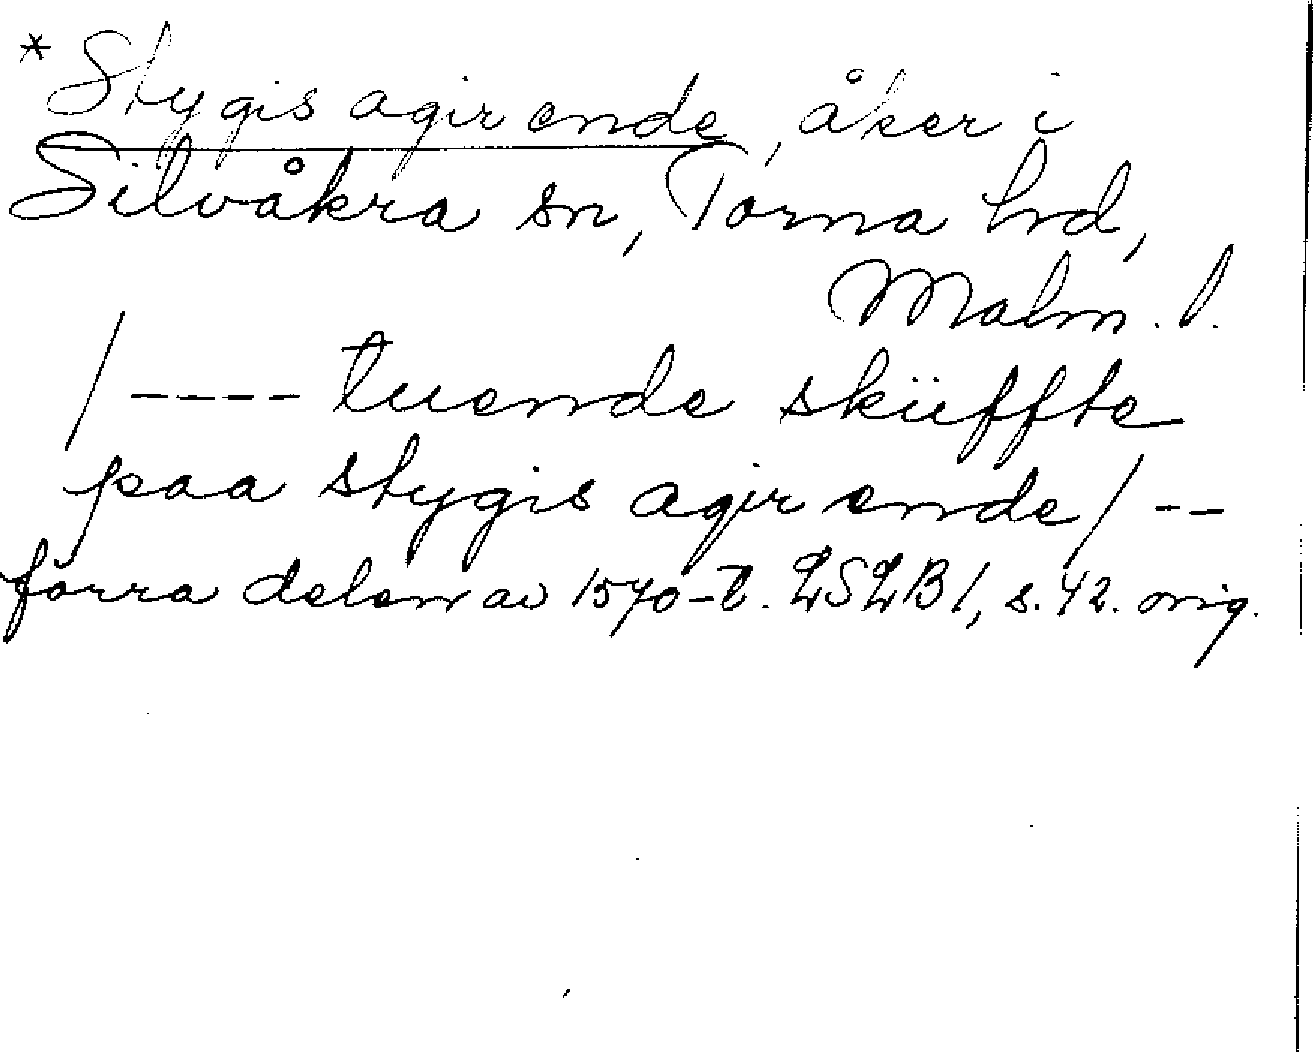 *Stygis agir ende, åker i
Silvåkra sn, Torna hd,
Malm. l.
/---- tuende sküffte
paa stygis agir ende/--
förra delen av 1570-t. LSLB 1, s. 42. orig.